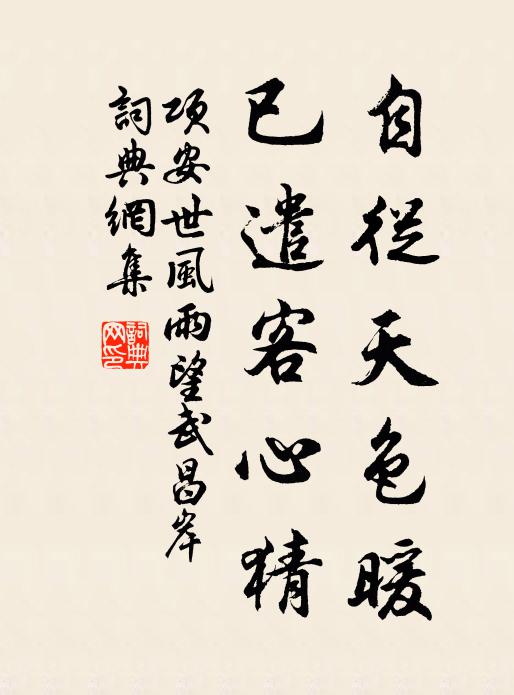 自從天色暖
已遣客心猜
項安世風雨望武昌岸
詞典網集
詞典網印